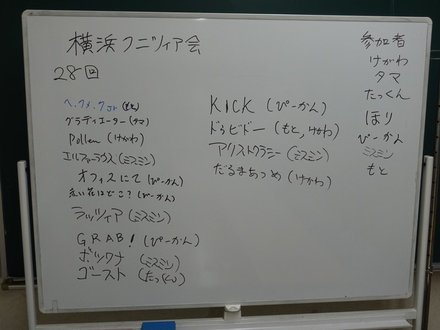 横浜クニツィア会
28回
ペックメックJr (もと)
グラディエーター (タマ)
Pollen (けがわ)
エルフェラウス (ミスミン)
オフィスにて (ぴーかん)
赤い花はどこ? (ぴーかん)
ラッツィア (ミスミン)
GRAB! (ぴーかん)
ボツワナ (ミスミン)
ゴースト (たっくん)
KICK (ぴーかん)
ドゥビドー (もと, けがわ)
アリストクラシー (ミスミン)
だるまあつめ (けがわ)
参加者
けがわ
タマ
たっくん
ほり
ぴーかん
ミスミン
もと